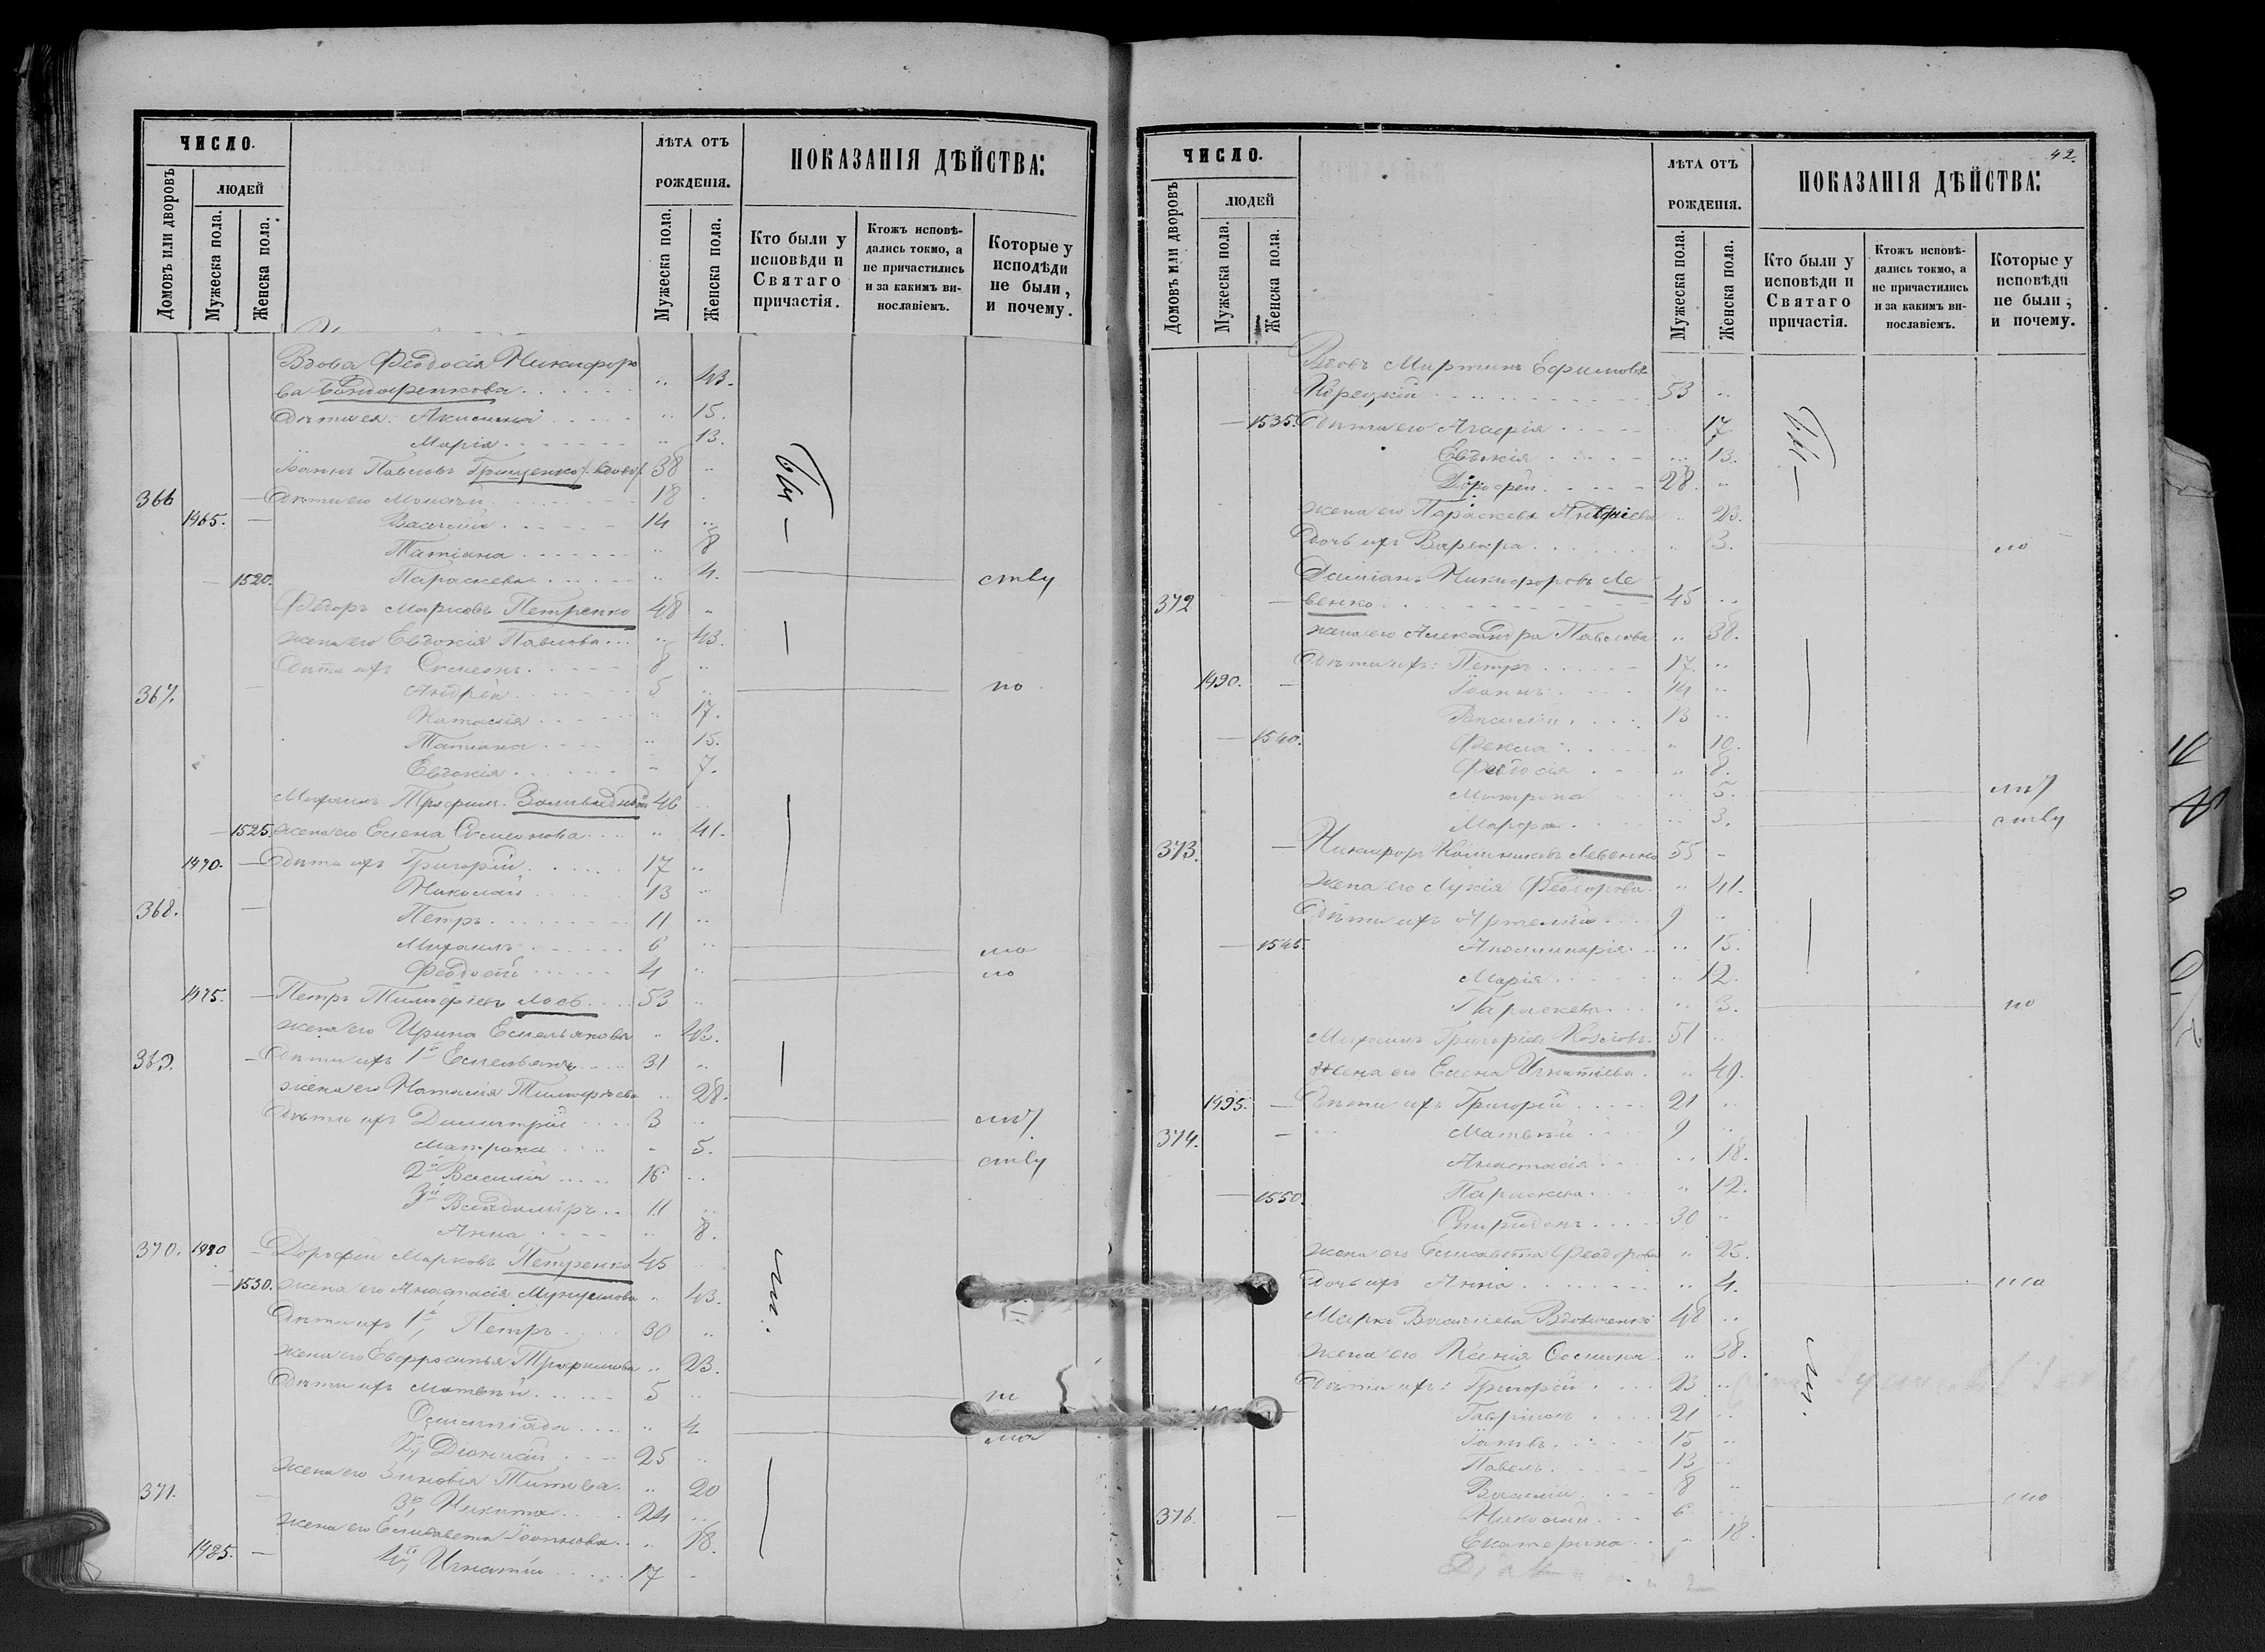 ЧИСЛО.
ЛѢТА ОТЪ РОЖДЕНІЯ.
ПОКАЗАНІЯ ДѢЙСТВА:
Домовъ или дворовъ
ЛЮДЕЙ
Мужеска пола.
Женска пола.
Мужеска пола.
Женска пола.
Кто были у исповѣди и Святаго причастія.
Ктожъ исповѣдались токмо, а не причастились и за какимъ винославіемъ.
Которые у исподѣди не были, и почему.
Вдова Феодосія Никифоро
ва Бондаренкова .. 43.
Дѣти ея: Акилина .. 15.
Марія 13.
Іоаннъ Павловъ Грищенко вдовъ 38 ..
366 Дѣти его 18
1465. Василій 14 ..
Татіана .. 8
1520. Параскева .. 4. ству
Ѳедоръ Марковъ Петренко 48 ..
жена его Евдокія Павлова .. 43.
Дѣти ихъ Симеонъ 8 ..
367. Андрей 5 .. по
Наталія .. 17.
Татіана .. 15.
Евдокія 7.
Михаилъ Трофим. 46 ..
1525. жена его Елена Симеонова .. 41.
1470. Дѣти ихъ Григорій 17 ..
Николай 13 ..
368. Петръ 11 ..
Михаилъ 6 .. мо
Феодосій 4 .. ло
1475. Петръ Тимофіевъ Лось 53 ..
жена его Ирина Емельянова ..
369. Дѣти ихъ 1й Емельянъ 31 ..
жена его Наталія Тимофѣева .. 28.
Дѣти ихъ Димитрій 3 ..
Матрона 5. ству
2й Василій 16 ..
3й Владиміръ 11 ..
Анна .. 8.
370. 1480 Дорофей Марковъ Петренко 45 ..
1530. жена его Анастасія .. 43.
Дѣти ихъ 1й, Петръ 30 ..
жена его Евфросинья Трофимова .. 23.
Дѣти ихъ Матвѣй 5 ..
Олимпіада .. 4
2й, Діонисій 25 ..
жена его Зиновія Титова .. 20
371. 3й, Никита 24 ..
жена его Елисавета Іоаннова .. 18.
1485. 4й, Игнатій 17
42.
ЧИСЛО.
ЛѢТА ОТЪ РОЖДЕНІЯ.
ПОКАЗАНІЯ ДѢЙСТВА:
Домовъ или дворовъ
ЛЮДЕЙ
Мужеска пола.
Женска пола.
Мужеска пола.
Женска пола.
Кто были у исповѣди и Святаго причастія.
Ктожъ исповѣдались токмо, а не причастились и за какимъ винославіемъ.
Которые у исповѣди не были, и почему.
Вдовъ Мартинъ Ефимовъ
Корецкій 53 ..
1535. Дѣти его Агафія 17.
Евдокія .. 13.
Дорофей 28. ..
жена его Параскева .. 23.
Дочь ихъ Варвара .. 3. ло
Даміанъ Никифоровъ Ле-
372 венко 45 ..
жена его Александра Павлова .. 38.
Дѣти ихъ: Петръ 17. ..
1490. Іоаннъ 14 ..
Василій 13 ..
1540. Фекла .. 10.
Феодосія .. 8.
Матрона .. 5.
Марфа .. 3. ству
373. Никифоръ Левенко 55 ..
жена его Лукія Феодорова .. 41.
Дѣти ихъ Артемій 9 ..
1545. Аполлинарія .. 15.
Марія .. 12.
Параскева .. 3. по
Михаилъ Григоріевъ Козловъ 51 ..
жена его Елена Игнатіева .. 49.
1495. Дѣти ихъ Григорій 21 ..
374. Матвѣй 9 ..
Анастасія .. 18.
1550. Параскева .. 12.
Спиридонъ 30 ..
жена его Елисавета Феодорова .. 25.
Дочь ихъ Анна .. 4.
Марко Василіевъ Вдовиченко 48 ..
жена его Ксенія .. 38.
Дѣти ихъ: Григорій 23 ..
Гавріилъ 21 ..
Іаковъ 15 ..
Павелъ 13 ..
Василій 8 ..
376. Николай 6
Екатерина .. 18.